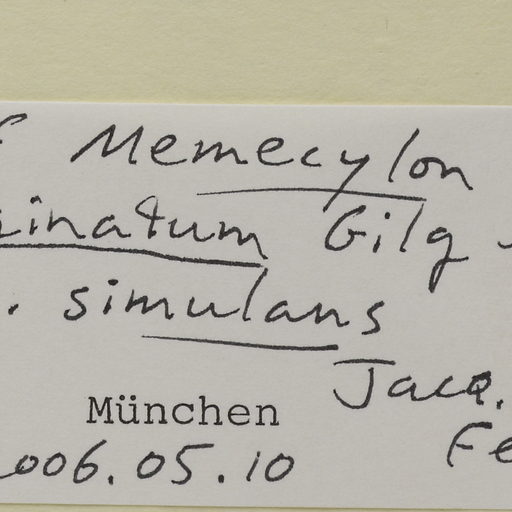 Memecylon
inatum Gilg
. simulans
Jacq.
München
2006.05.10 Fe